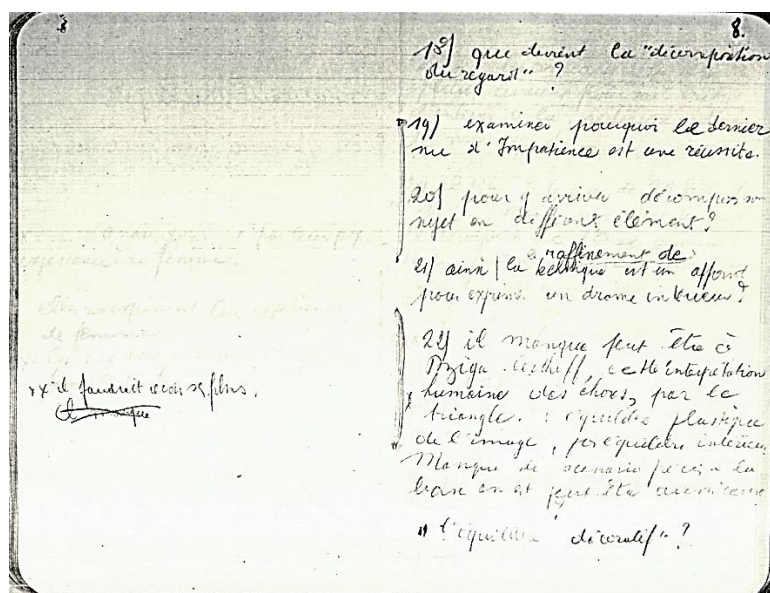 8.
18) que devient la "décomposition
du regard" ?
19) examiner pourquoi le dernier
nu d'Impatience est une réussite.
20) pour y arriver décomposer
sujet en différents élément ?
le raffinement de
21) ainsi la technique est un apport
pour exprimer un drame intérieur ?
22) il manque peut être à
Dziga cette interprétation
humaine des choses, par le
triangle. : équilibre plastique
de l'image, par équilibre intérieur
Manque de scenario précis à la
base en est peut être
"l'équilibre décoratif" ?
xx il faudrait revoir ses films.